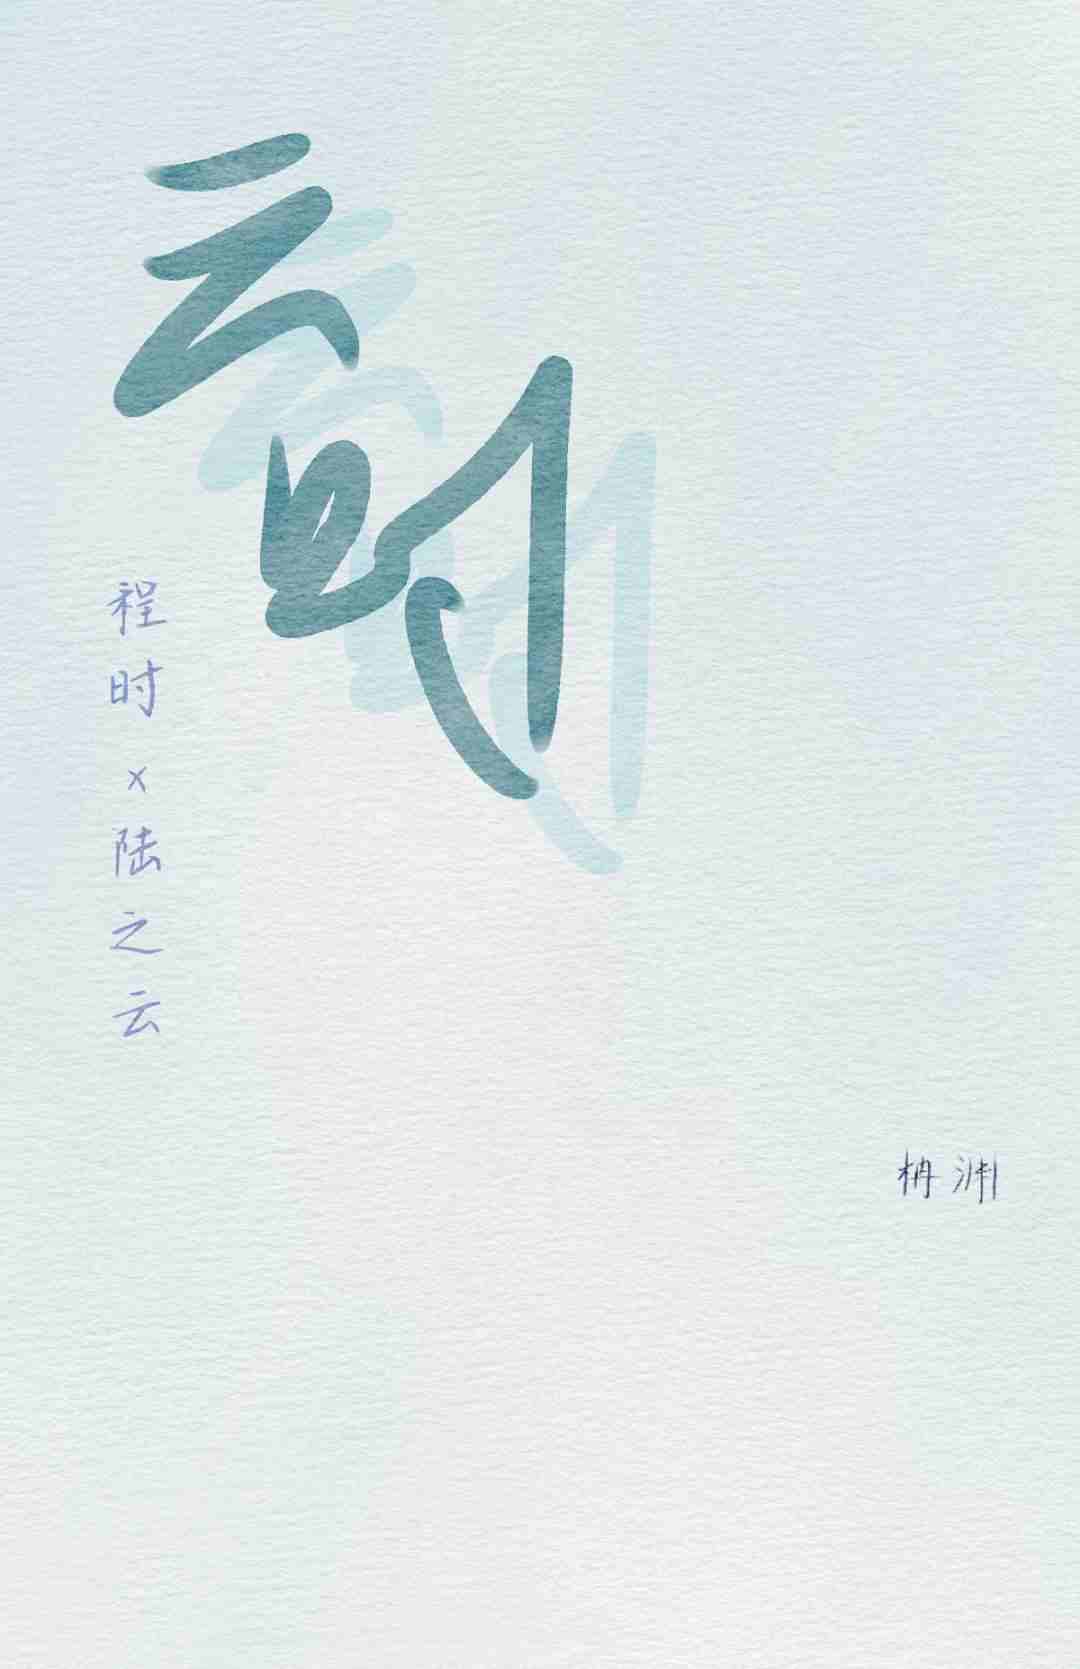 云时
程时×陆之云
柟渊